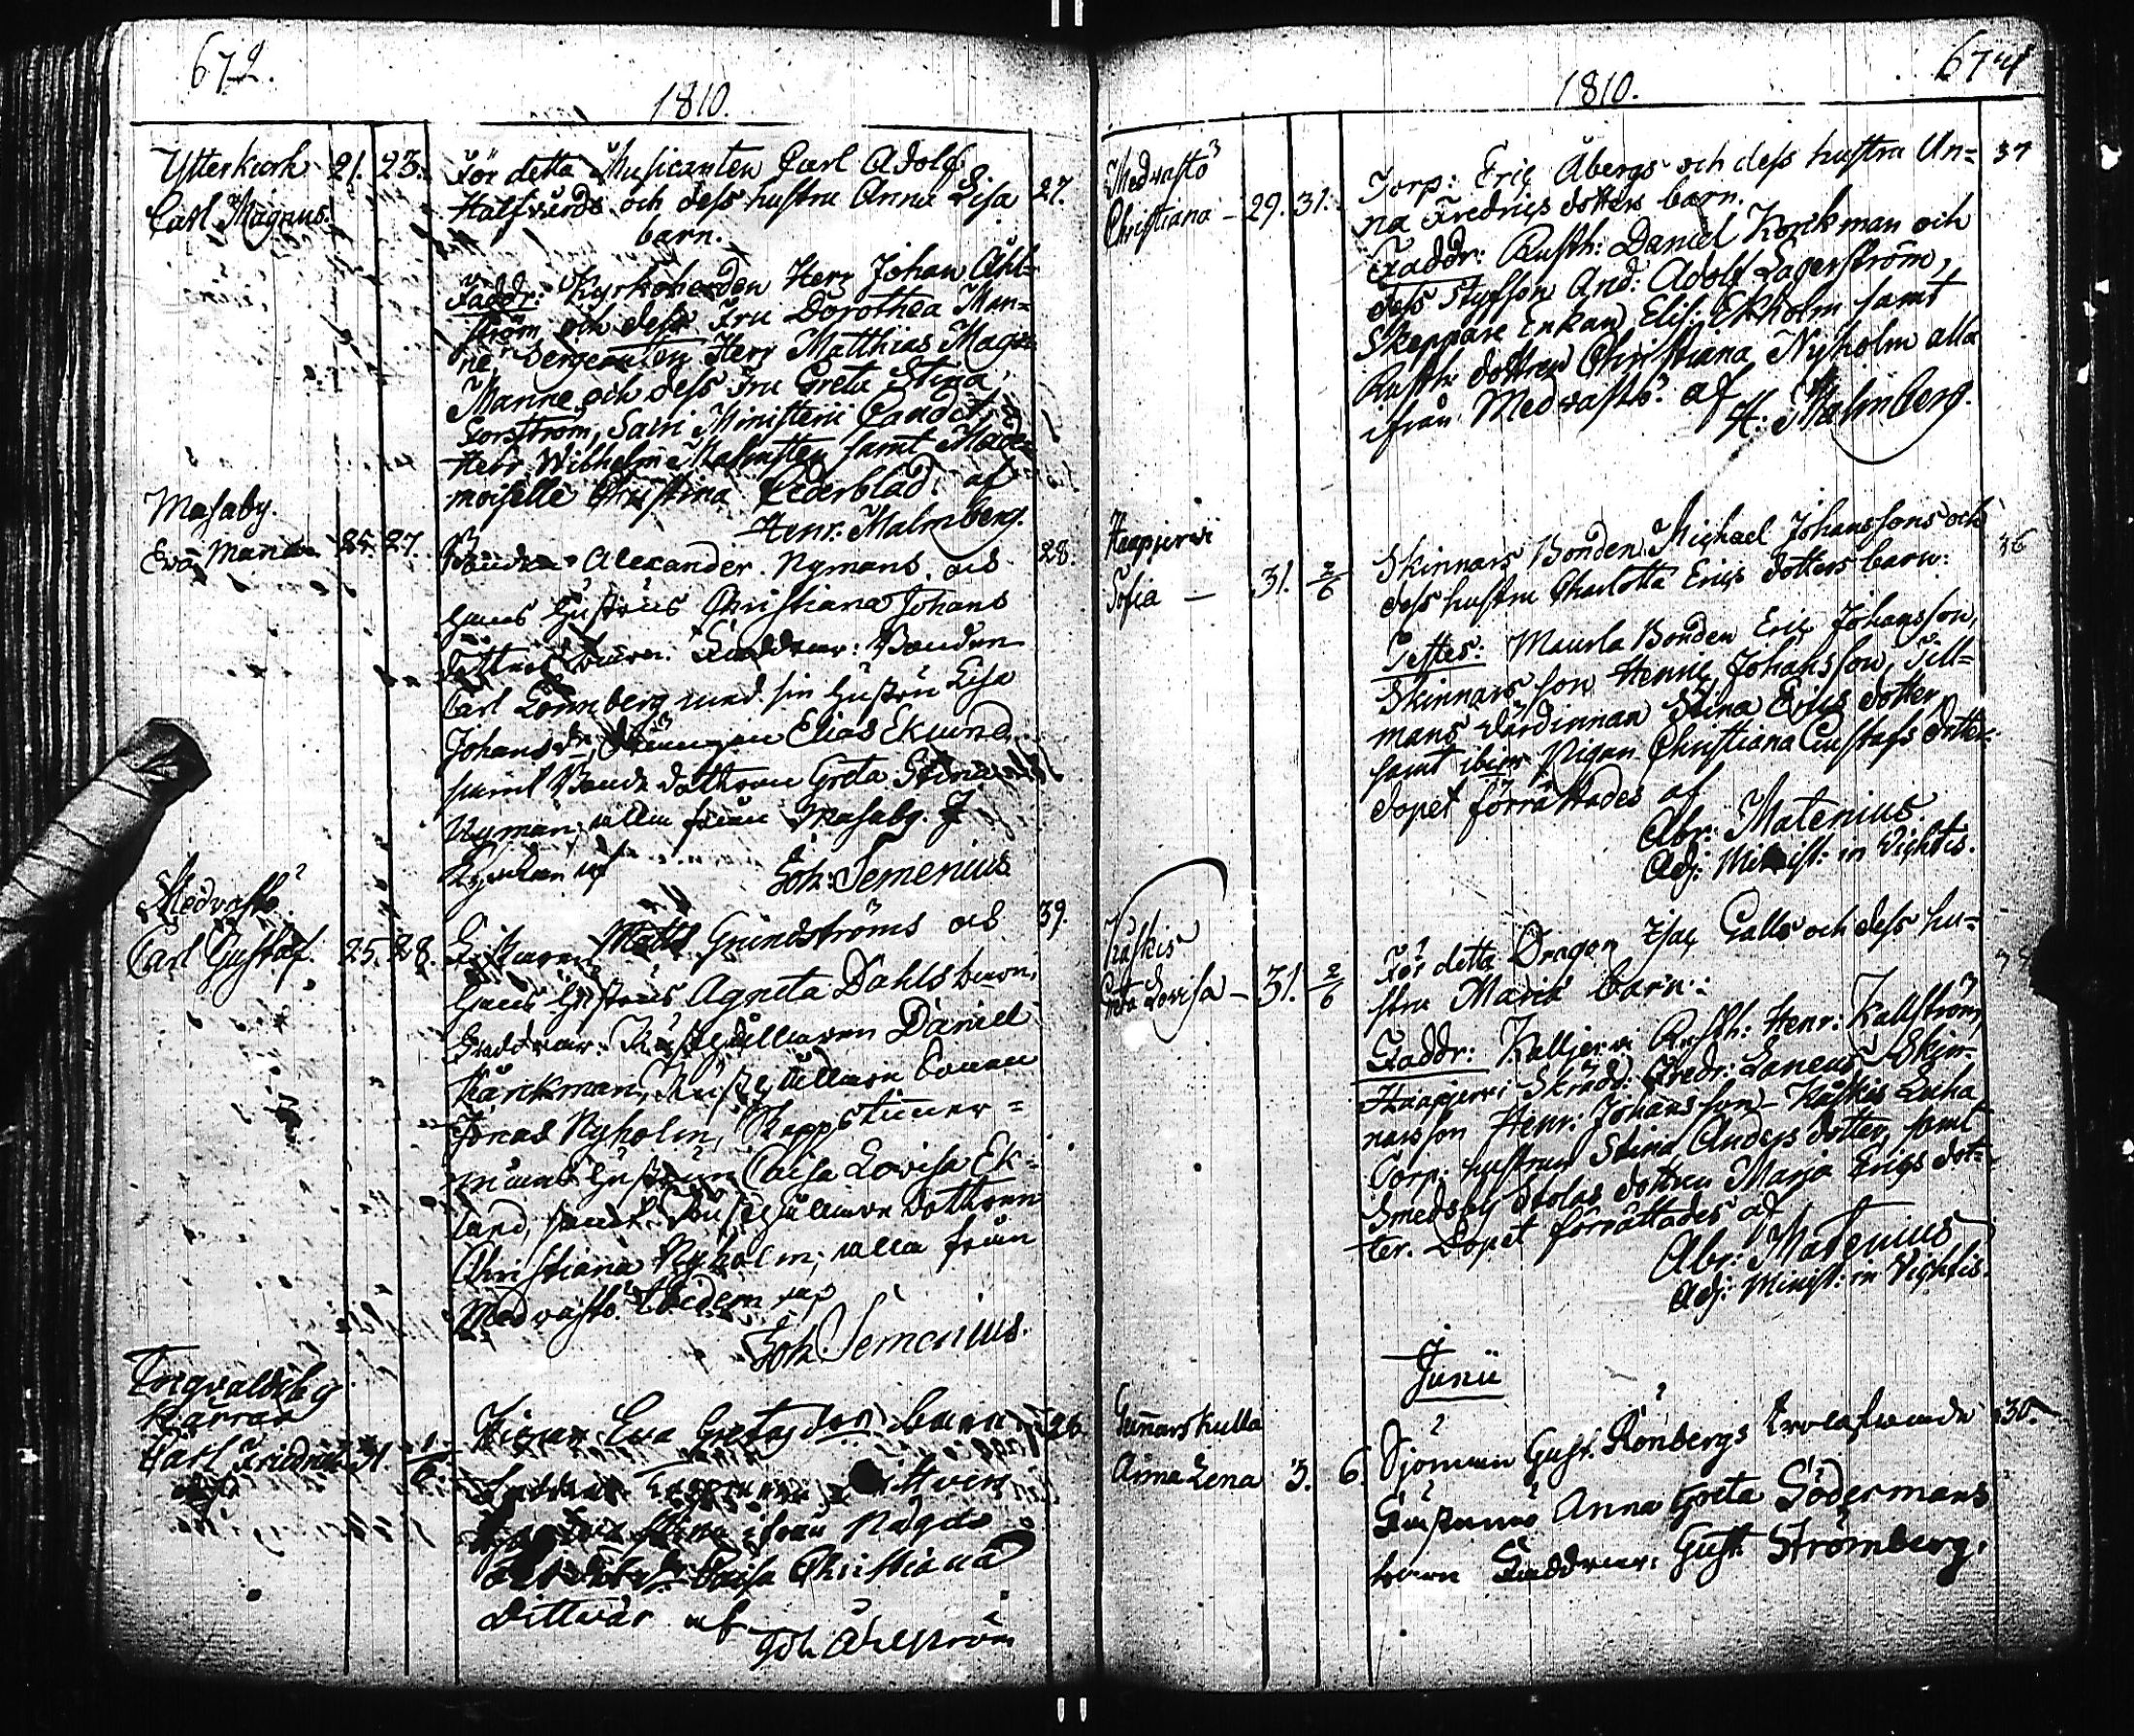 672.
1810.
Ytterkurk 21. 23. För detta Musicanten Carl Adolf 27.
Carl Magnus. Halfvårds och dess hustru Anna Lisa
barn.
Faddr: Kyrkoherden Herr Johan Ahl=
ström och dess Fru Dorothea Man=
ne, Sergeanten Herr Matthias Magn:
Manne och dess Fru Greta Stina
Forsström, Sacri Ministerii Candit:
Herr Wilhelm Malmsten samt Made=
moiselle Christina Cederblad. af
Henr: Malmberg.
Masaby.
Eva Maria 25. 27. Bonden Alexander Nymans och 28.
hans hustrus Christiana Johans
dotters barn. Faddrar: Bonden
Carl Lönnberg med sin hustru Lisa
Johans dr, Drängen Elias Eklund
samt Bonde dottren Greta Stina
Nyman, alla från Masaby.
af
Joh: Semenius.
Medvasto
Carl Gustaf. 25. 28. Matts Grundströms och 39.
hans hustrus Agneta Dahls barn.
Faddrar: Rusthållaren Daniel
Kårckman, Rusthållare Sonen
Jonas Nyholm, Skepps timmer=
mans hustrun Caisa Lovisa Ek=
lund, samt Rusthållare dottren
Christiana Nyholm; alla från
Medvasto. Ibidem af
Joh: Semenius.
Ingvaldsby
Kärrar
Carl Friedrich 31. 1/6. Pigan Eva Gretas barn 26.
ifrån
Caisa Christiana
Dittvar af
Joh. Åhlström
674
1810.
Medvastö
Christiana - 29. 31. Torp: Eric Åbergs och dess hustru An= 37
na Fredrics dotters barn.
Faddr: Rusth: Daniel Korckman och
dess Styfson And: Adolf Lagerström,
Skeppare Enkan Elis: Ekholm samt
Rusth: dottren Christiana Nyholm alla
ifrån Medvasto. af
H: Malmberg.
Haapjerwi
Sofia - 31. 2/6 Skinnars Bonden Michael Johanssons och 36
dess hustru Charlotta Erics dotters barn:
Testes: Maurla Bonden Eric Johansson,
Skinnars son Henric Johansson, Till=
mans Värdinnan Stina Erics dotter
samt ibm Pigan Christiana Gustafs dotter.
dopet förrättades af
Abr: Matenius.
Adj: Minist: in Vichtis.
Kåskis
Greta Lovisa - 31. 2/6 För detta Dragon Isac Galls och dess hu=
stru Maria barn:
Faddr: Kalljerwi Rusth: Henr: Kallström,
Haapjerwi Skrädd: Fredr: Laneus, Skin=
narsson Henr: Johansson - Kåskis Luha
Torp: hustrun Stina Anders dotter, samt
Smedsby Stolas dottren Maria Erics dot=
ter. Dopet förrättades af
Abr: Matenius
Adj: Minist: in Vichtis.
Junii
Gunnarskulla
Anna Lena 3. 6. Sjöman Gust. Rönbergs trolofwade 30.
hustrus Anna Greta Södermans
barn Faddrar: Gust. Strömberg,